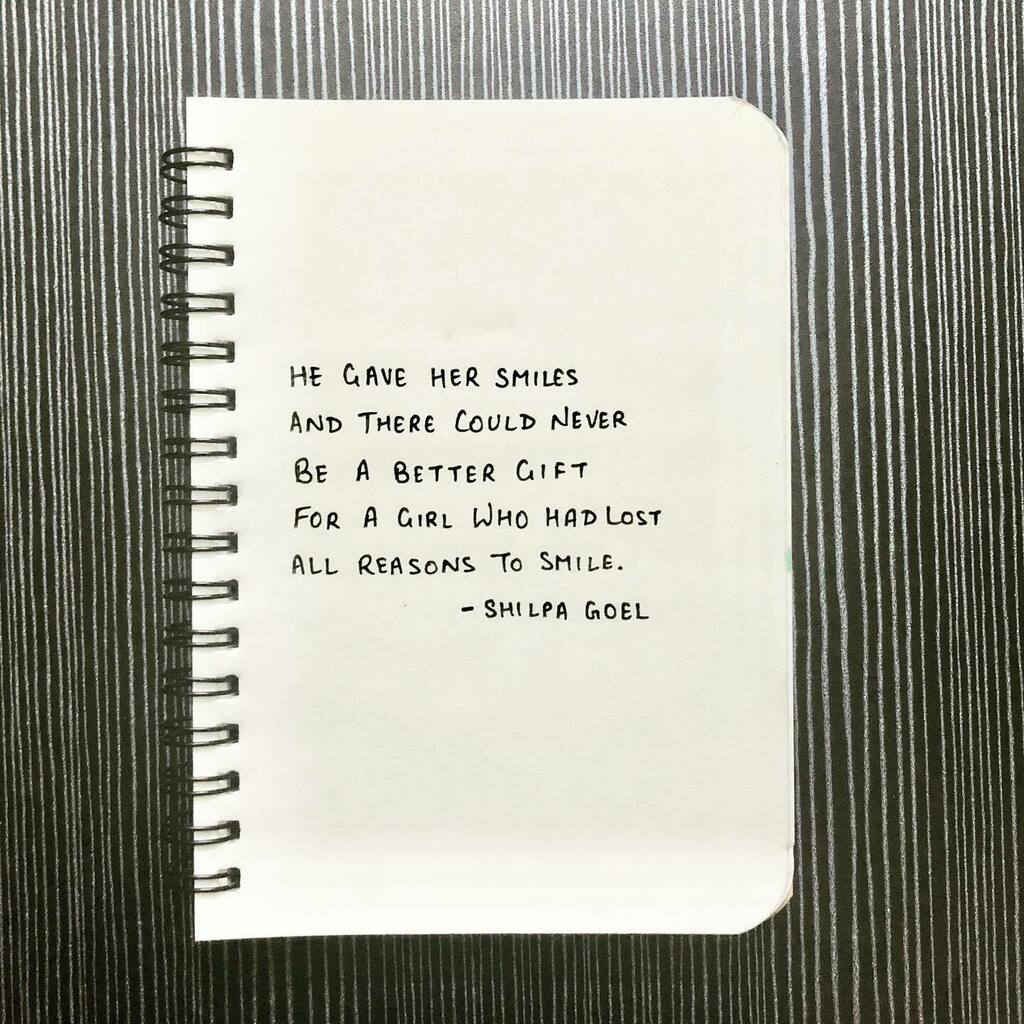 HE GAVE HER SMILES
AND THERE COULD NEVER
BE A BETTER GIFT
FOR A GIRL WHO HAD LOST
ALL REASONS TO SMILE.
- SHILPA GOEL